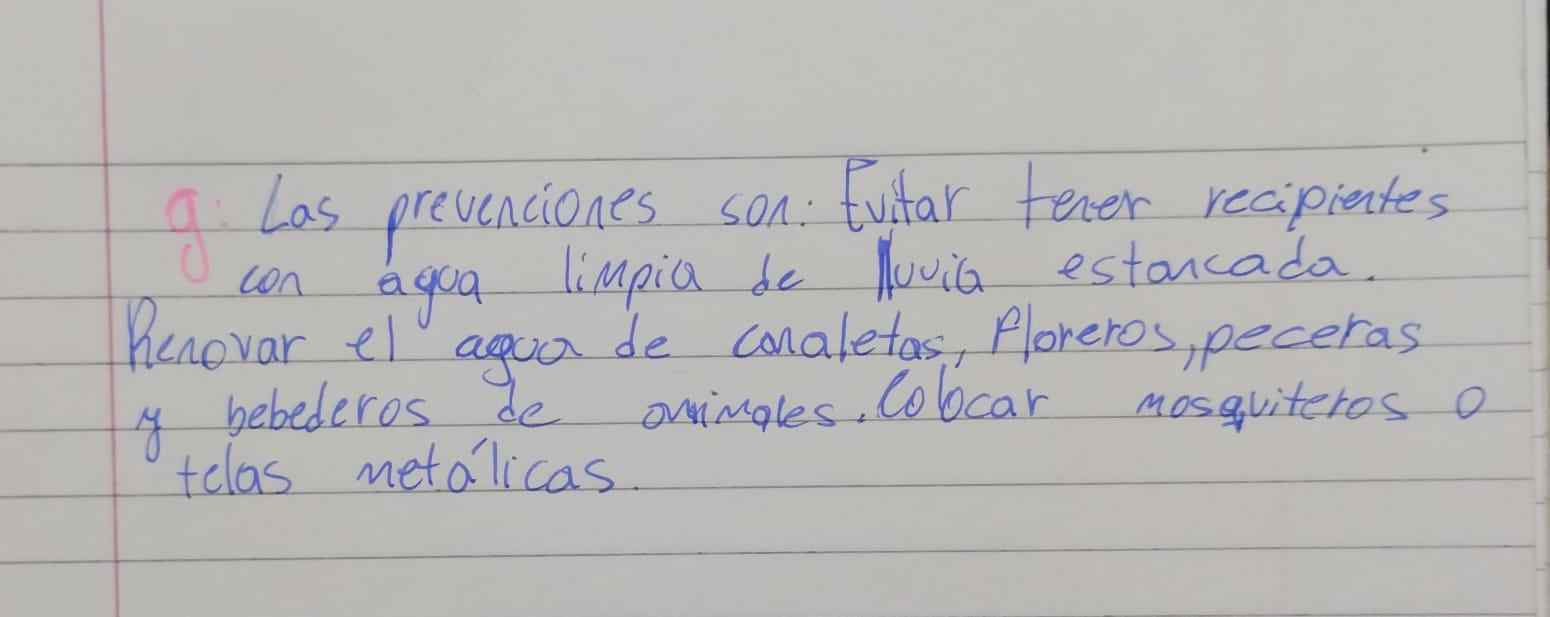 g: Las prevenciones son: Evitar tener recipientes
con agua limpia de lluvia estancada.
Renovar el agua de canaletas, floreros, peceras
y bebederos de animales. Colocar mosquiteros o
telas metálicas.